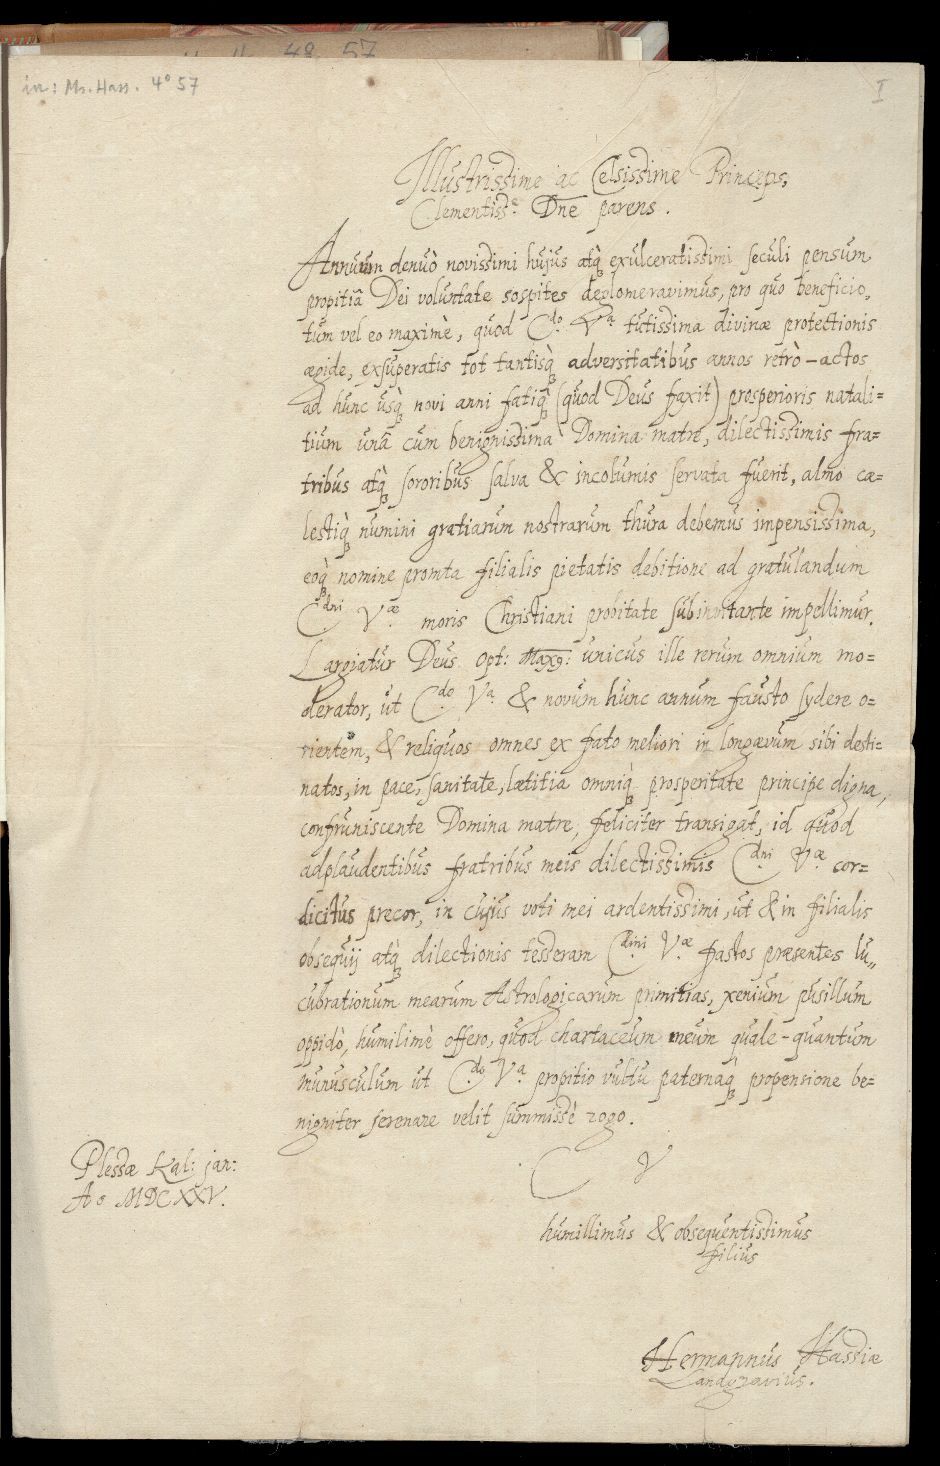 in: Ms. Hass. 4° 57
I
Illustrissime ac Celsissime Princeps,
Clementiss.e Dne parens.
Annuum denuò novissimi hujus atq́ exulceratissimi seculi pensum
propitiâ Dei voluntate sospites deglomeravimus, pro quo beneficio,
tum vel eo maximè, quod C.do V.a tutissima divinæ protectionis
ægide, exsuperatis tot tantisq́ adversitatibus annos retrò-actos
ad hunc usq́ novi anni fatiq́ (quod Deus faxit) prosperioris natali=
tium unâ cum benignissima Domina matre, dilectissimis fra=
tribus atq́ sororibus salva & incolumis servata fuerit, almo cæ=
lestiq́ numini gratiarum nostrarum thura debemus impensissima,
eoq́ nomine promta filialis pietatis debitione ad gratulandum
C.dni V.æ moris Christiani probitate subinvitante impellimur.
Largiatur Deus Opt: Max9: unicus ille rerum omnium mo=
derator, ut C.do V.a & novum hunc annum fausto sydere o=
rientem, & reliquos omnes ex fato meliori in longævum sibi desti=
natos, in pace, sanitate, lætitia omniq́ prosperitate principe digna,
confruniscente Domina matre, feliciter transigat, id quod
adplaudentibus fratribus meis dilectissimis C.dni V.æ cor=
dicitus precor, in cujus voti mei ardentissimi, ut & in filialis
obsequij atq́ dilectionis tesseram C.dini V.æ fastos præsentes lu„
cubrationum mearum Astrologicarum primitias, xenium pusillum
oppidò, humilimè offero, quod chartaceum meum quale-quantum
munusculum ut C.do V.a propitio vultu paternaq́ propensione be=
nigniter serenare velit summissè rogo.
C V
Plessæ Kal: jan:
Ao MDCXXV.
humillimus & obsequentissimus
filius
Hermannus Hassiæ
Landgravius.